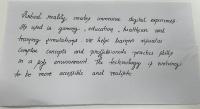 Virtual reality creates immersive digital experiences.
It's used in gaming, education, healthcare and
training simulations. VR helps learners visualize
complex concepts and professionals practice skills
in a safe environment. The technology is evolving
to be more accessible and realistic.